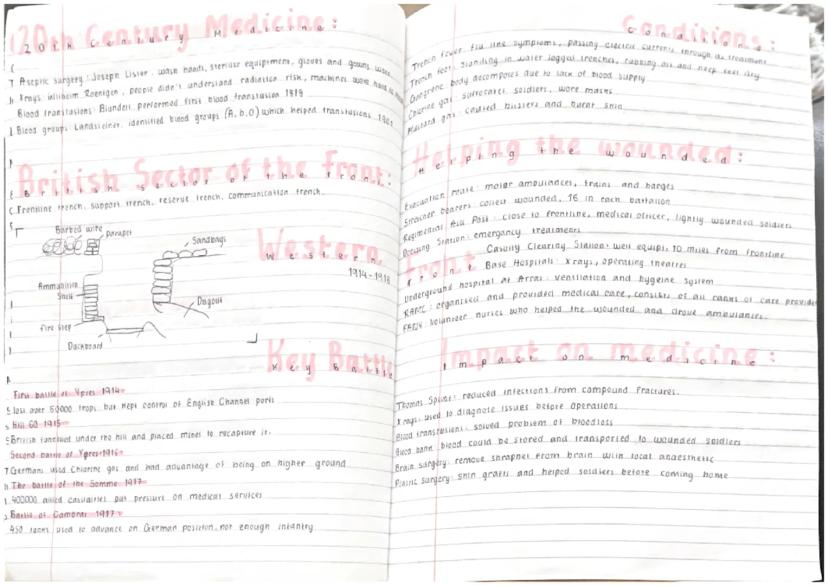 20th Century Medicine:
Aseptic surgery: Joseph Lister, wash hands, sterilise equiptment, gloves and gowns, wore
Xrays: Wilhelm Roentgen, people didn't understand radiation risk, machines were hard to
Blood transfusions: Blundell performed first blood transfusion 1819
Blood groups: Landsteiner, identified blood groups (A,b,o) which helped transfusions 1901
British Sector of the Front:
Frontline trench, support trench, reserve trench, communication trench.
Barbed wire
parapet
Sandbags
Ammunition
Shelf
Dugout
Fire step
Duckboard
Western Front
1914-1918
Key Battle
First battle of Ypres 1914
lost over 50000 trops, but kept control of English Channel ports
Hill 60 1915
British tunnelled under the hill and placed mines to recapture it.
Second battle of Ypres 1915
Germans used Chlorine gas and had advantage of being on higher ground
The battle of the Somme 1917
400000 allied casualties put pressure on medical services
Battle of Cambrai 1917
450 tanks used to advance on German position, not enough infantry
Conditions:
Trench fever: flu like symptoms, passing electric currents through as treatment
Trench foot: standing in water logged trenches, rubbing oil and keep feet dry
Gangrene: body decomposes due to lack of blood supply
Chlorine gas: suffocates soldiers, wore masks
Mustard gas: caused blisters and burnt skin
Helping the wounded:
Evacuation route: motor ambulances, trains and barges
Stretcher bearers: collect wounded, 16 in each battalion
Regimental Aid Post: close to frontline, medical officer, lightly wounded soldiers
Dressing Station: emergency treatments
Casualty Clearing Station: well equipt, 10 miles from frontline
Base Hospitals: Xrays, operating theatres
Underground hospital at Arras: ventilation and hygeine system
RAMC: organised and provided medical care, consists of all ranks of care provider
FANY: volunteer nurses who helped the wounded and drove ambulances.
Impact on medicine:
Thomas Splint: reduced infections from compound fractures.
Xrays: used to diagnose issues before operations
Blood transfusions: solved problem of bloodloss
Blood bank: blood could be stored and transported to wounded soldiers
Brain surgery: remove shrapnel from brain with local anaesthetic
Plastic surgery: skin grafts and helped soldiers before coming home